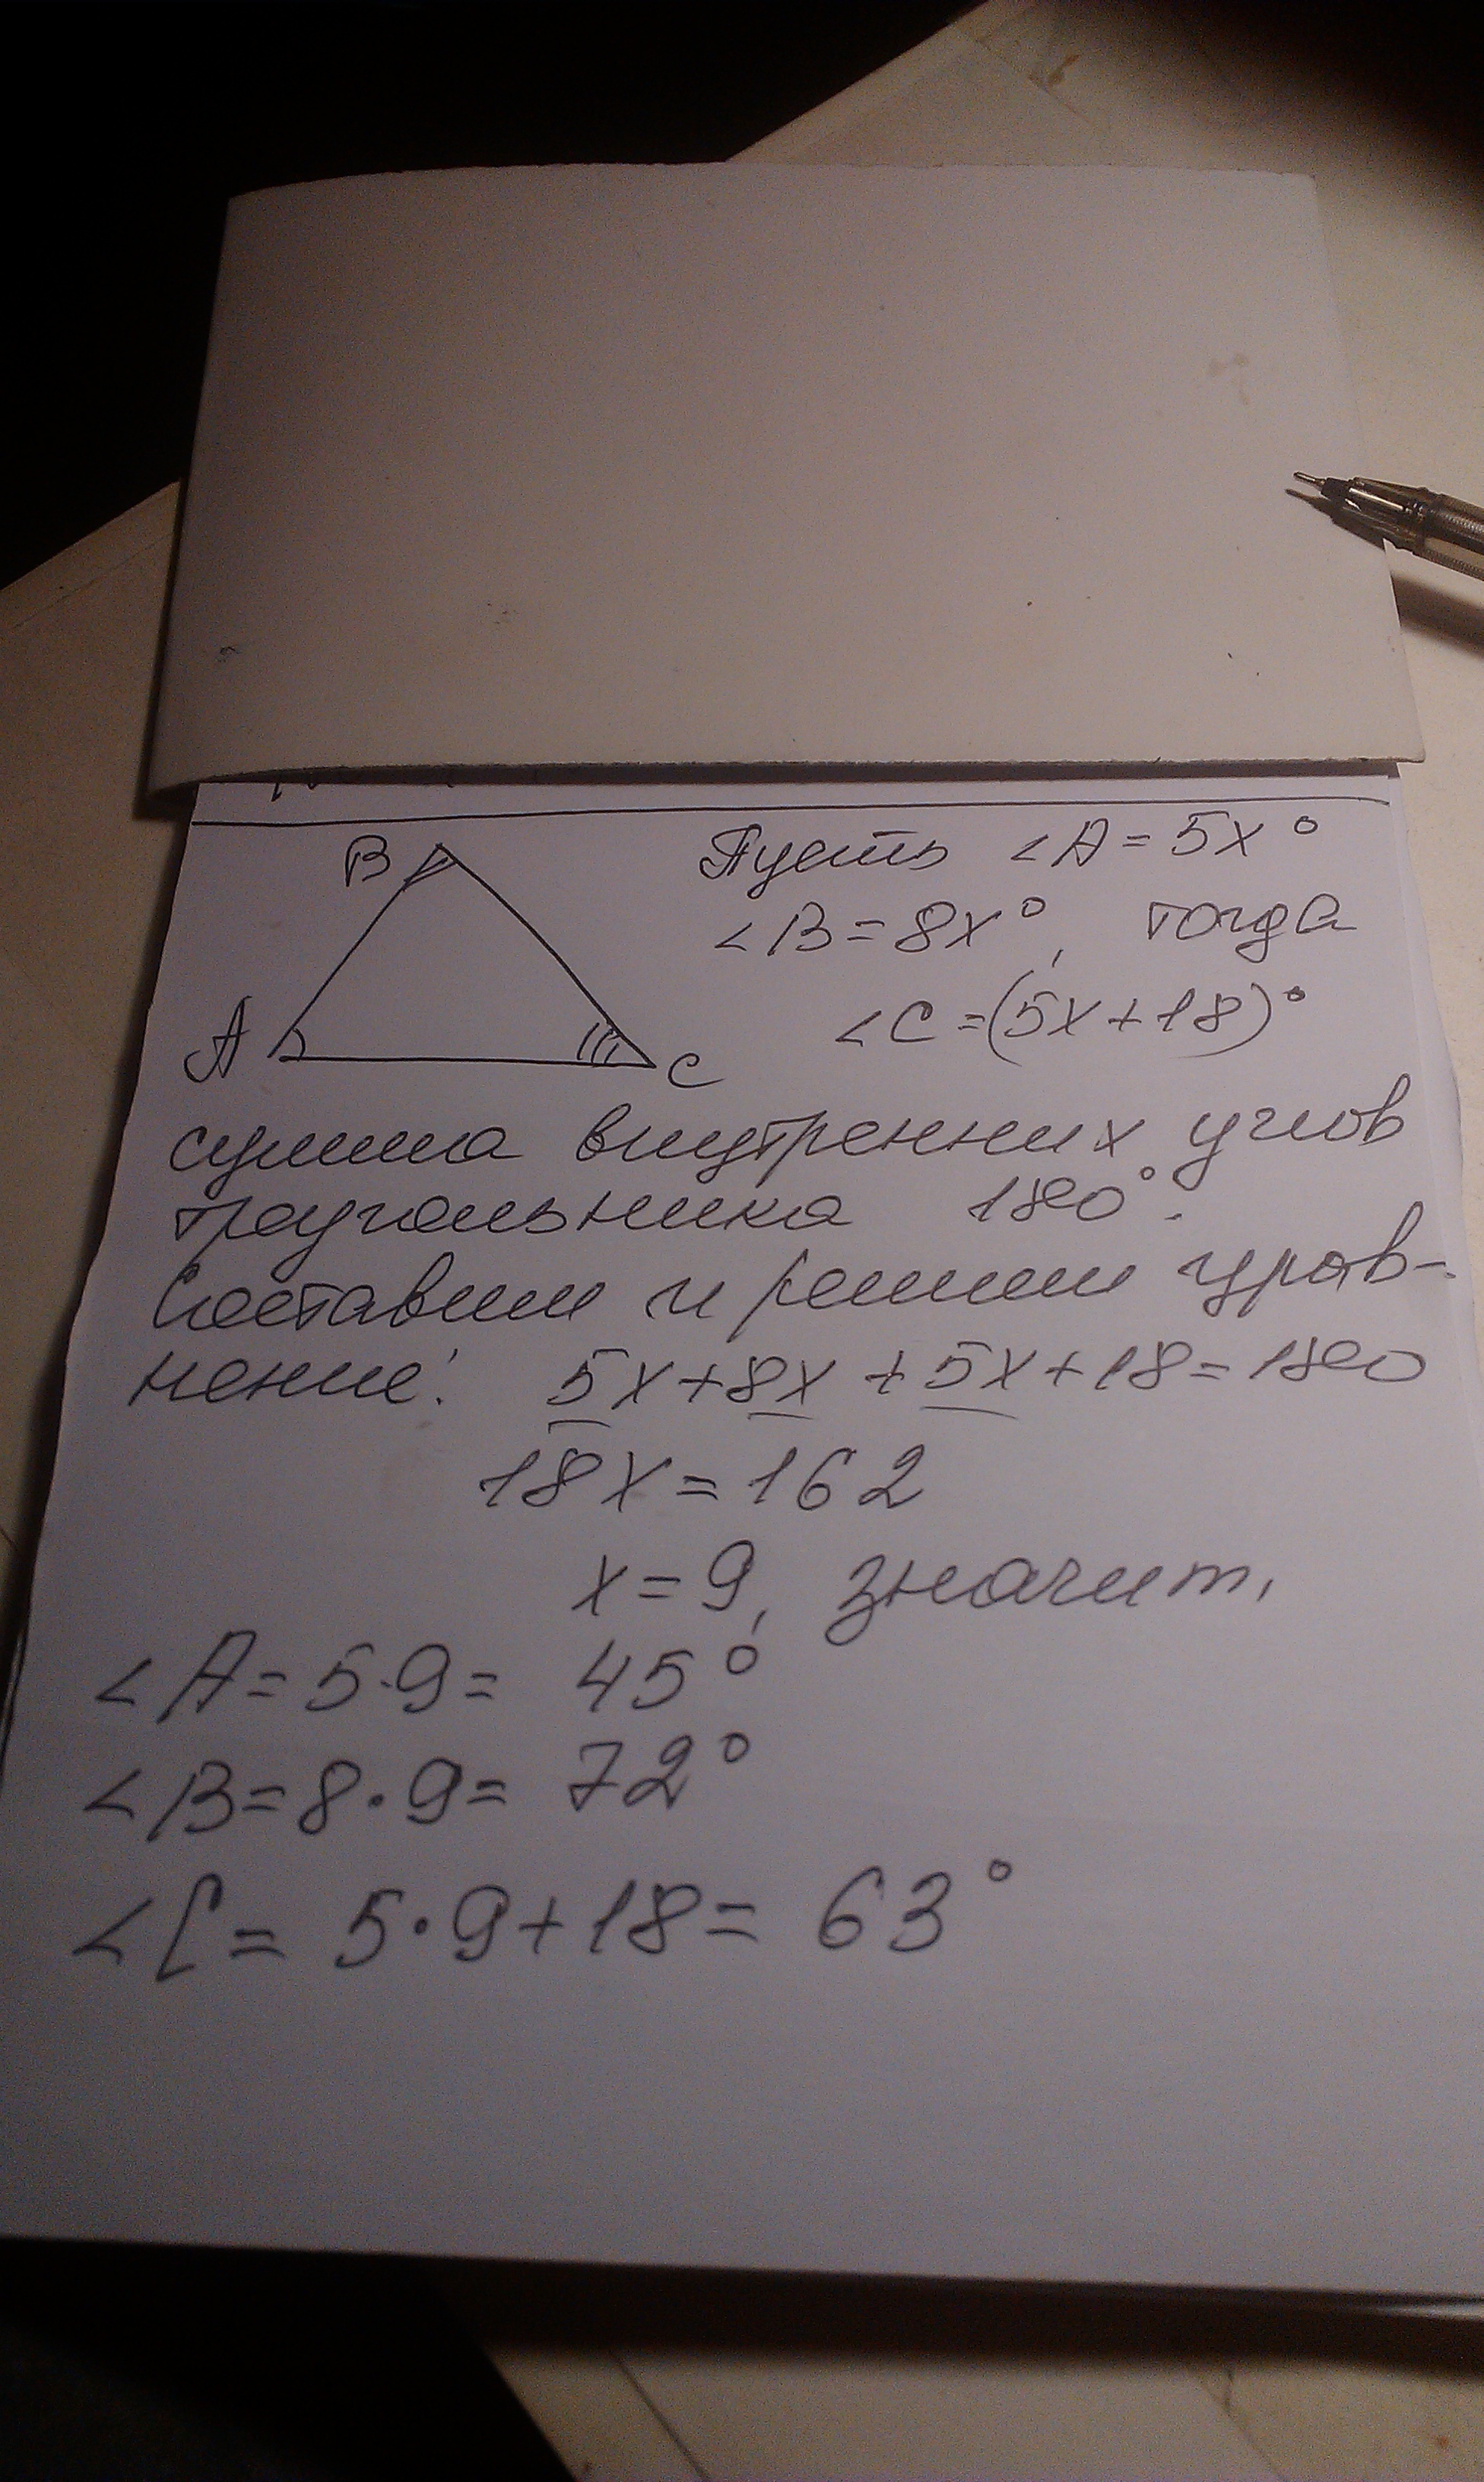 B
A
C
Пусть ∠A = 5x°
∠B = 8x°, тогда
∠C = (5x + 18)°
сумма внутренних углов
треугольника 180°.
Составим и решим урав-
нение: 5x + 8x + 5x + 18 = 180
18x = 162
x = 9, значит,
∠A = 5·9 = 45°
∠B = 8·9 = 72°
∠C = 5·9 + 18 = 63°